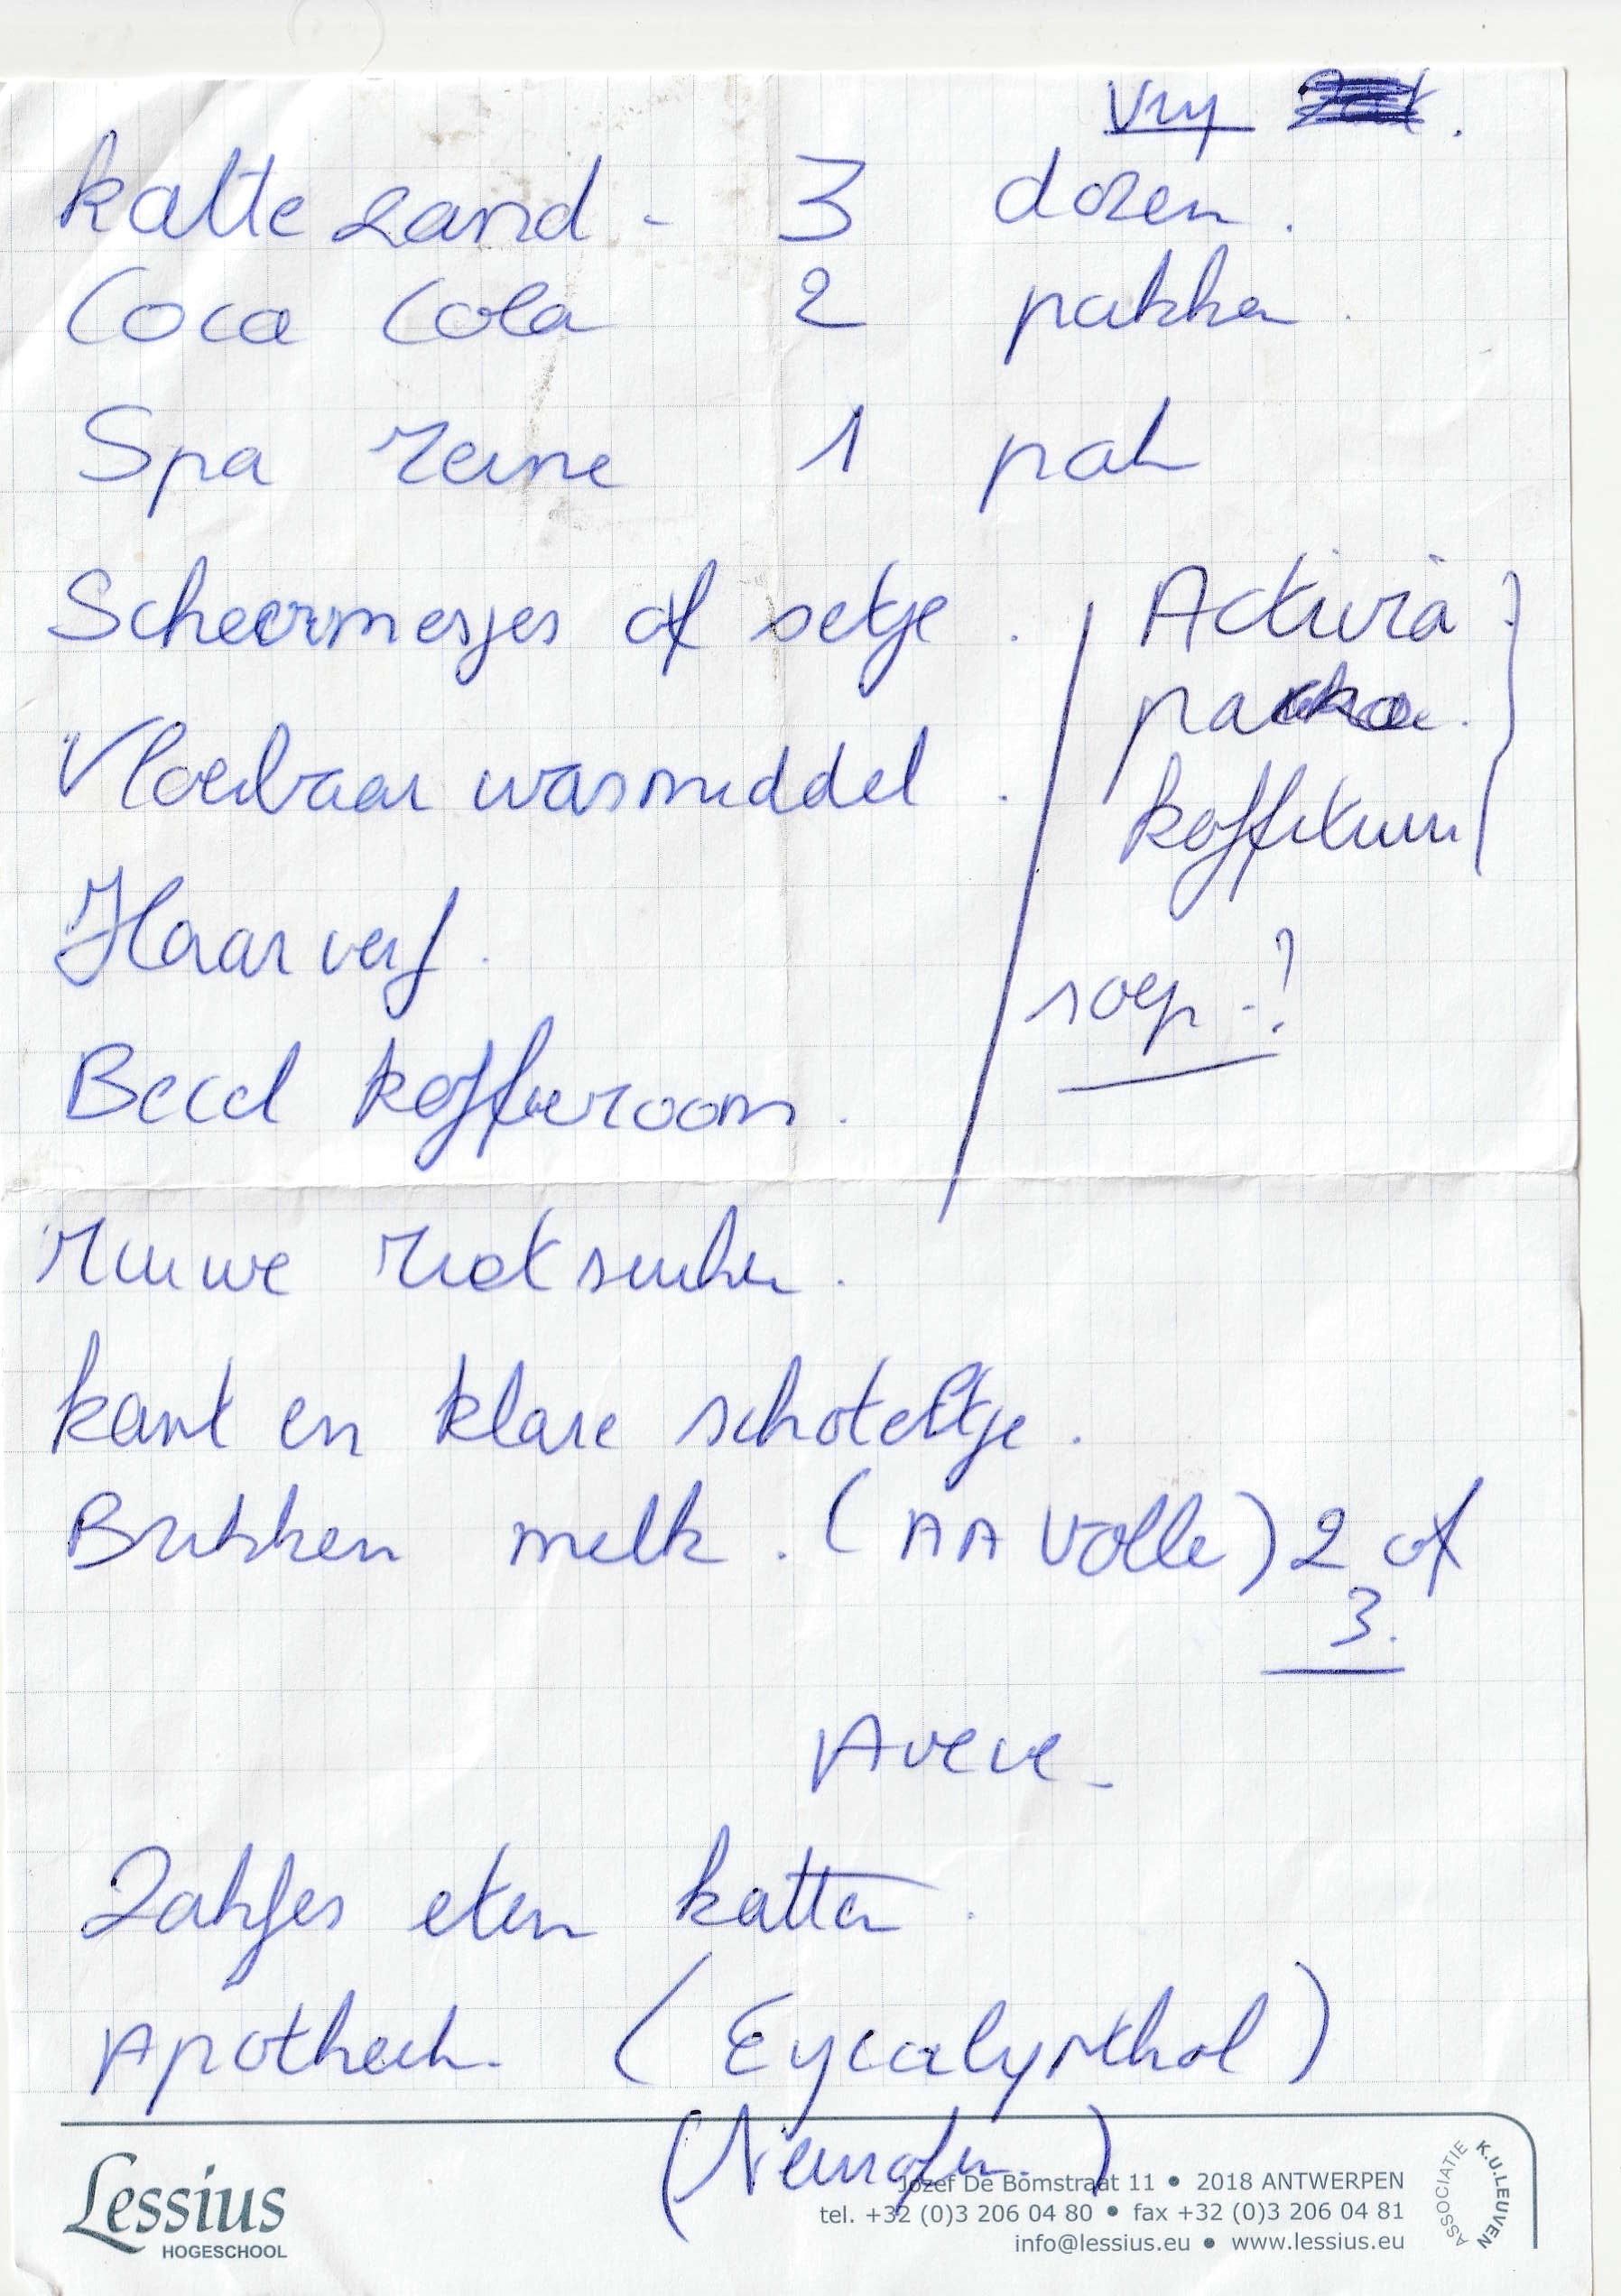 Vrij
kattezand - 3 dozen.
Coca Cola 2 pakken.
Spa reine 1 pak
Scheermesjes of setje.
Activia
Vloeibaar wasmiddel.
Haarverf.
soep-?
Becel koffieroom.
ruwe rietsuiker.
kant en klare schoteltje.
Brikken melk. (AA Volle) 2 of
3.
Aveve-
Zakjes eten katten.
Apotheek. (Eycalypthol)
(Neurofen.)
Lessius
HOGESCHOOL
Jozef De Bomstraat 11 • 2018 ANTWERPEN
tel. +32 (0)3 206 04 80 • fax +32 (0)3 206 04 81
info@lessius.eu • www.lessius.eu
ASSOCIATIE
K.U.LEUVEN